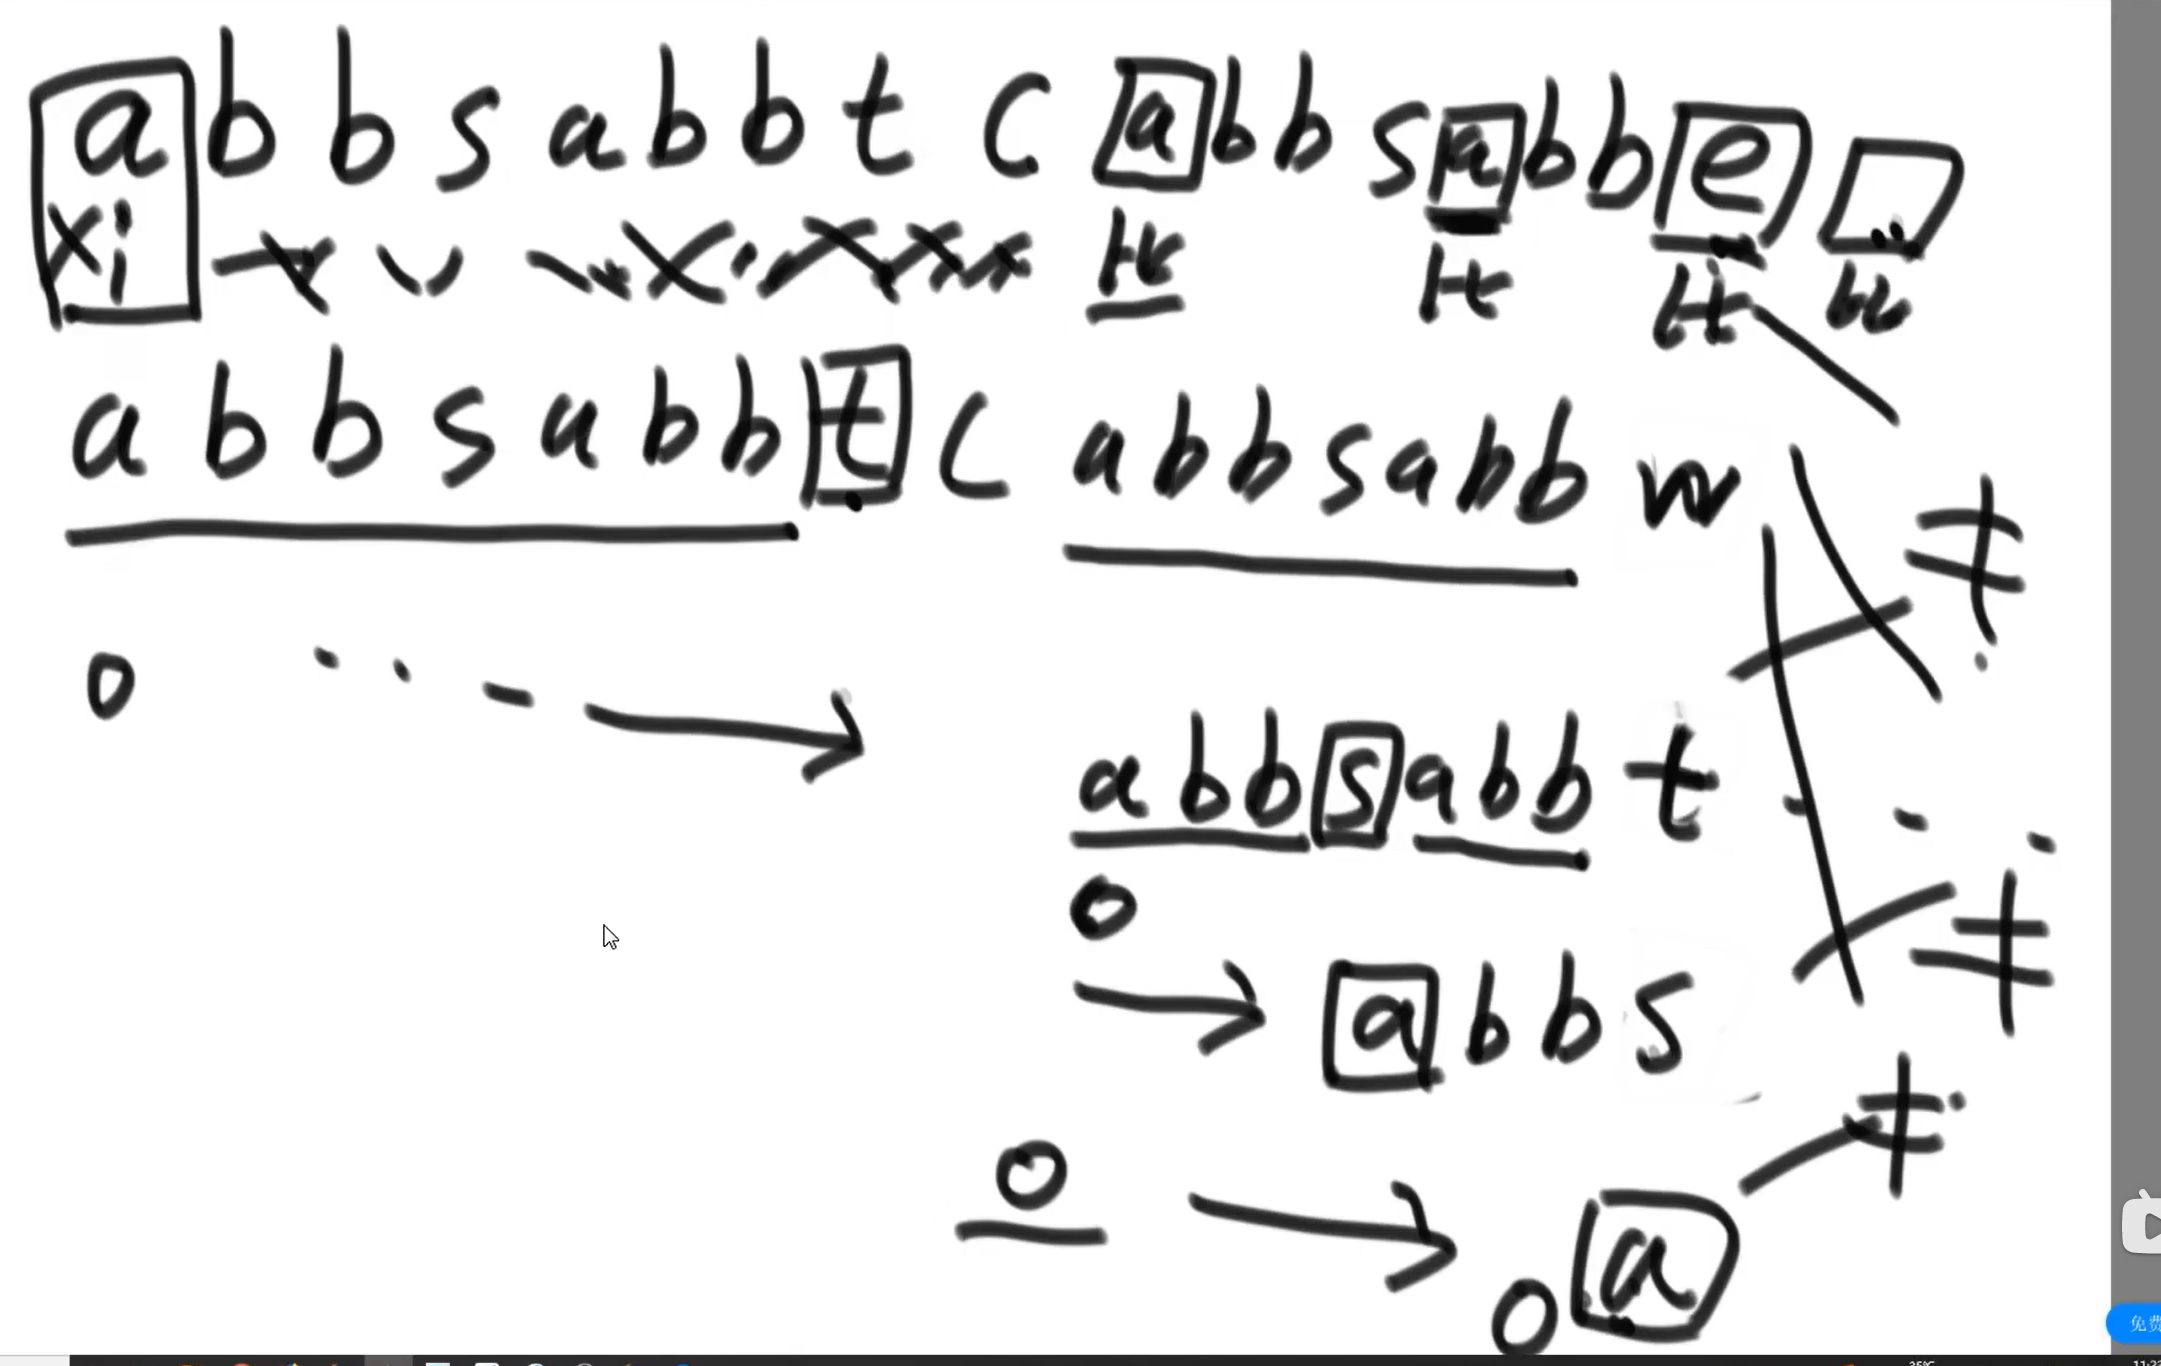 abbsabbtcabbsabbe
xi
abbsabbtcabbsabbw
≠
0
abbsabbt
0
≠
abbs
≠
0
0 a
免费
35°C